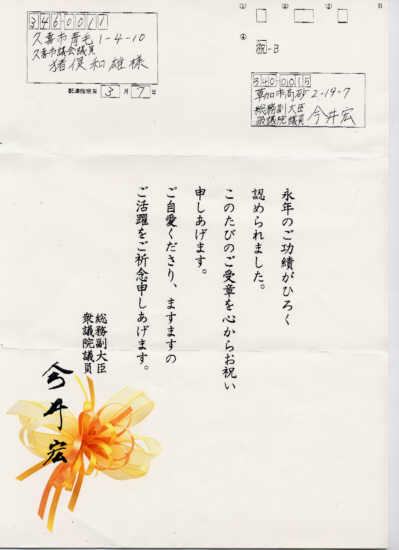 3460011
久喜市青毛1-4-10
久喜市議会議員
猪俣和雄様
配達指定日 3月7日
祝-B
3400015
草加市高砂2-19-7
総務副大臣
衆議院議員 今井宏
永年のご功績がひろく
認められました。
このたびのご受章を心からお祝い
申しあげます。
ご自愛くださり、ますますの
ご活躍をご祈念申しあげます。
総務副大臣
衆議院議員
今井宏